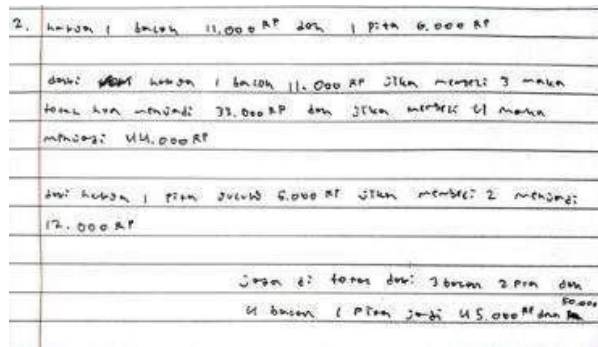 2. harga 1 bacoh 11.000 RP dan 1 pita 6.000 RP
dari harga 1 bacoh 11.000 RP jika membeli 3 maka
total harga menjadi 33.000 RP dan jika membeli 4 maka
menjadi 44.000 RP
dari harga 1 pita 6.000 RP jika membeli 2 menjadi
12.000 RP
jaga di total dari 3 bacoh 2 Pita dan
4 bacoh 1 Pita jadi 45.000 RP dan 50.000